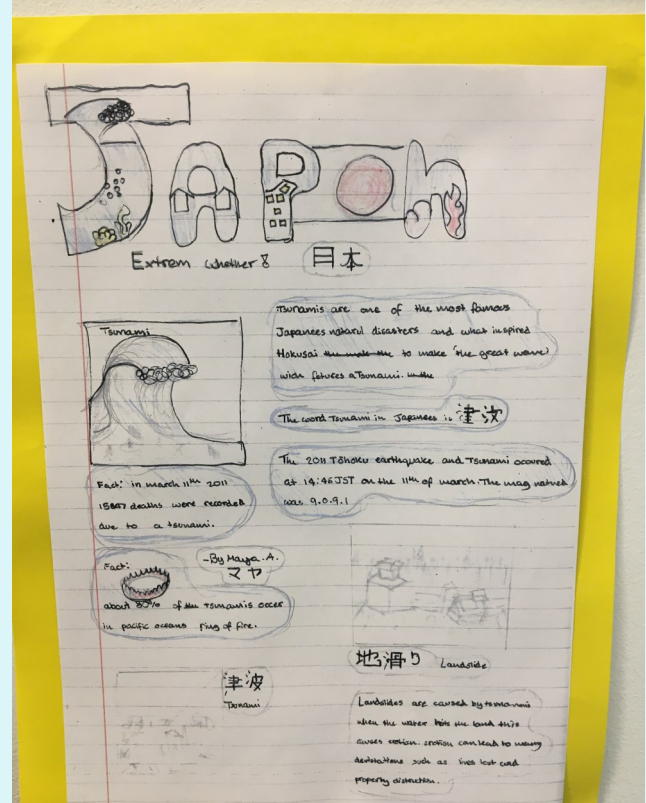 JAPAn
Extrem whether:
目本
Tsunami
Tsunamis are one of the most famous
Japanees naturul disasters and what inspired
Hokusai to make 'the great wave'
wich fetures a Tsunami.
The word Tsunami in Japanees is 津波
The 2011 Tōhoku earthquake and Tsunami ocoured
at 14:46 JST on the 11th of march. The mag natued
was 9.0.9.1
Fact: in march 11th 2011
deaths were recorded
due to a tsunami.
Fact:
about 80% of the Tsunamis occer
in pacific oceans ring of fire.
-By Maya.A.
マヤ
地滑り Landslide
津波
Tsunami
Landslides are caused by tsunamis
when the water hits the land this
causes erotion. erotion can lead to
such as lives lost and
property distruction.